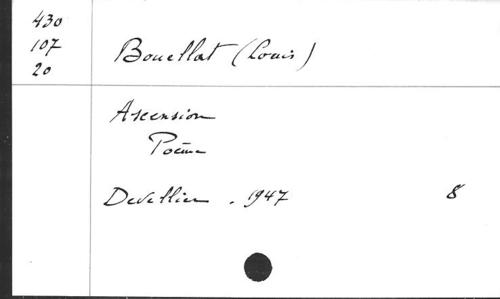 430
107
20
Bouellat (Louis)
Ascension
Poème
Devellier . 1947 8